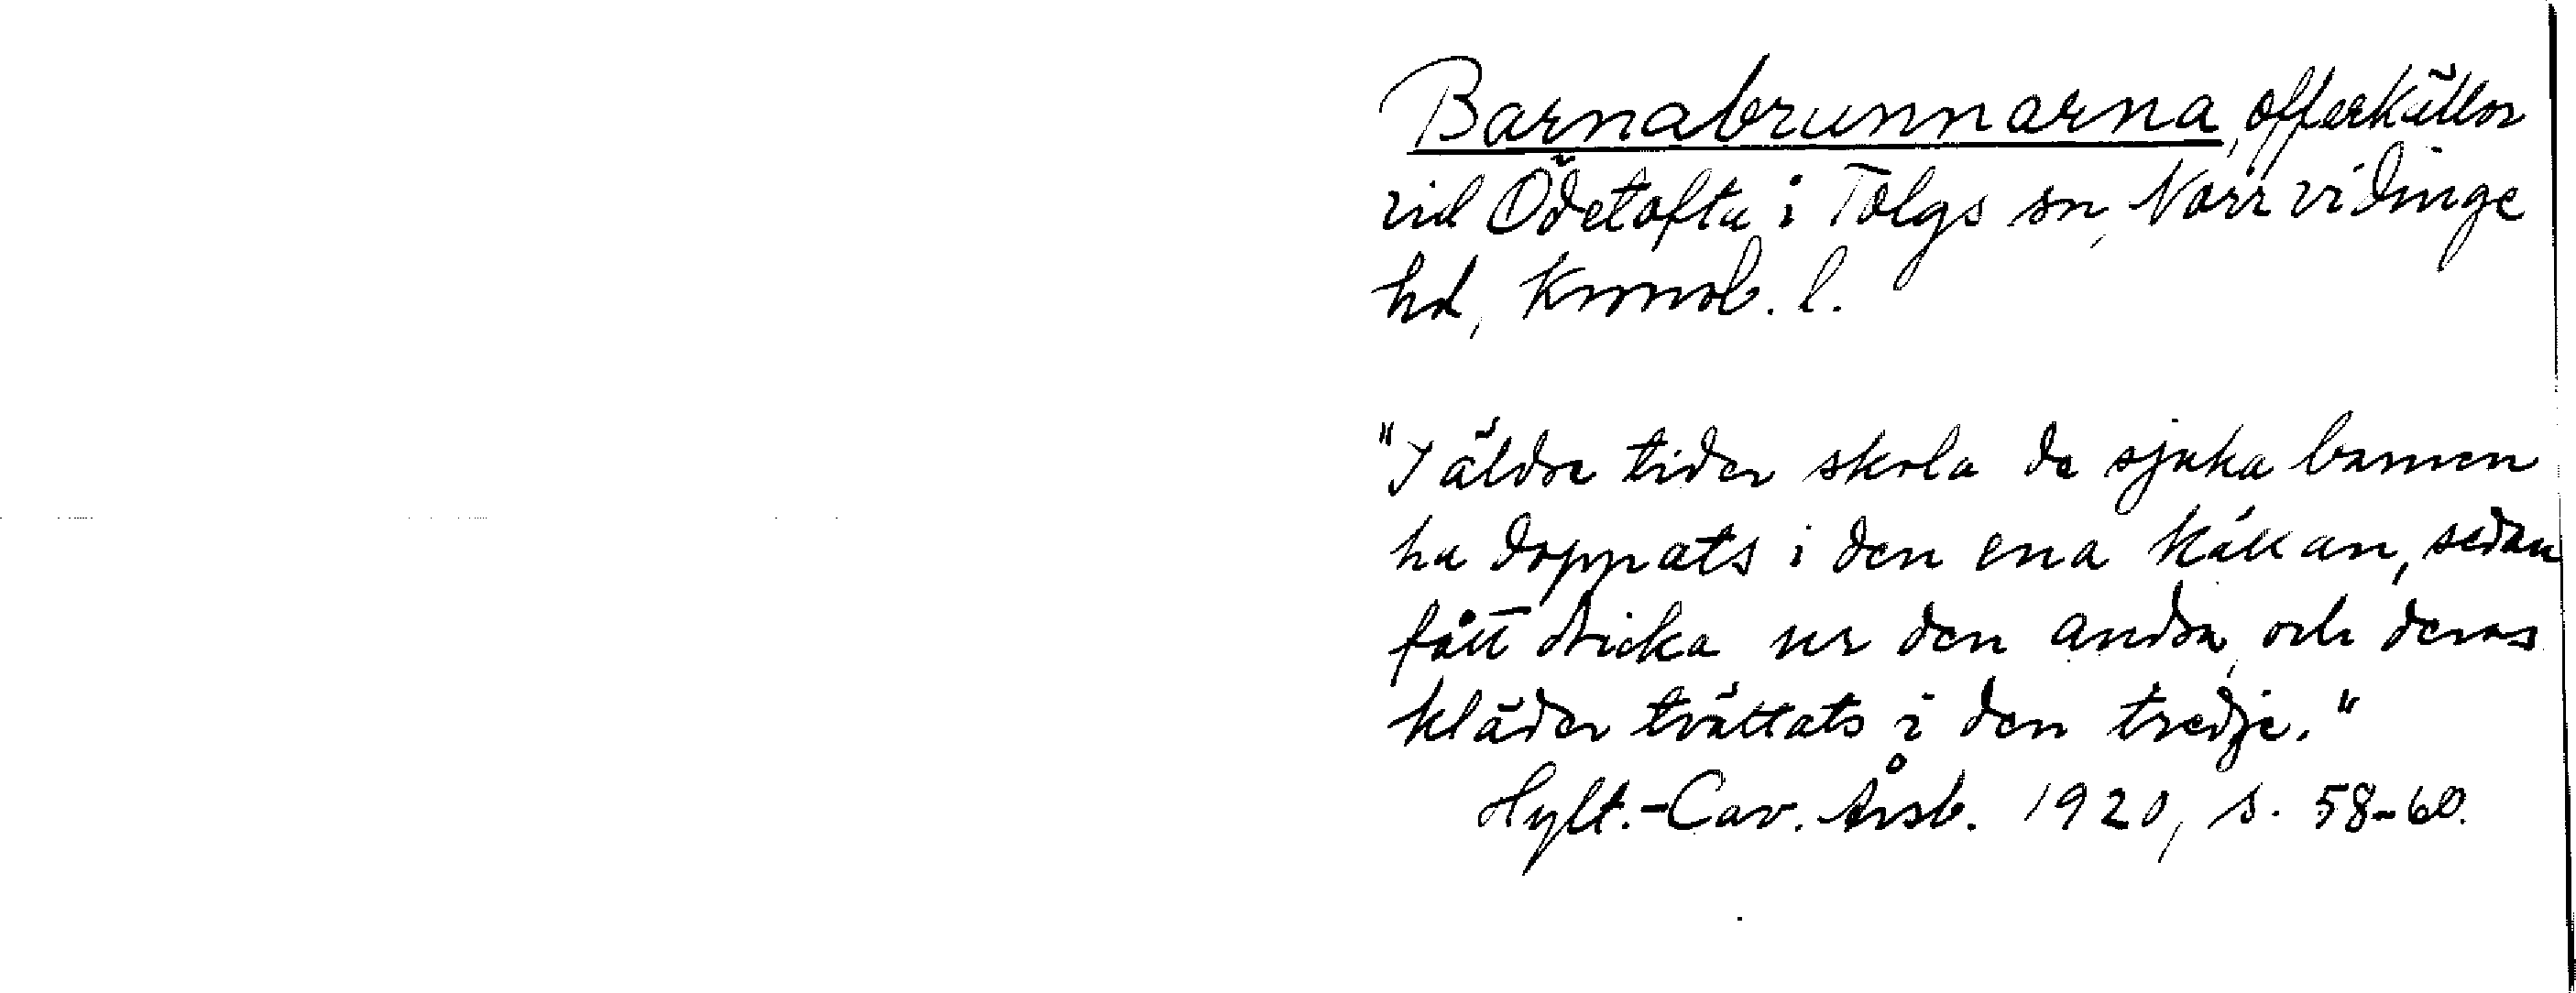 Barnabrunnarna, offerkällor
vid Ödetofta i Tolgs sn, Norrvidinge
hd, Kronob. l.
"I äldre tider skola de sjuka barnen
ha doppats i den ena källan, sedan
fått dricka ur den andra, och deras
kläder tvättats i den tredje."
Hylt.-Cav. Årsb. 1920, s. 58-60.